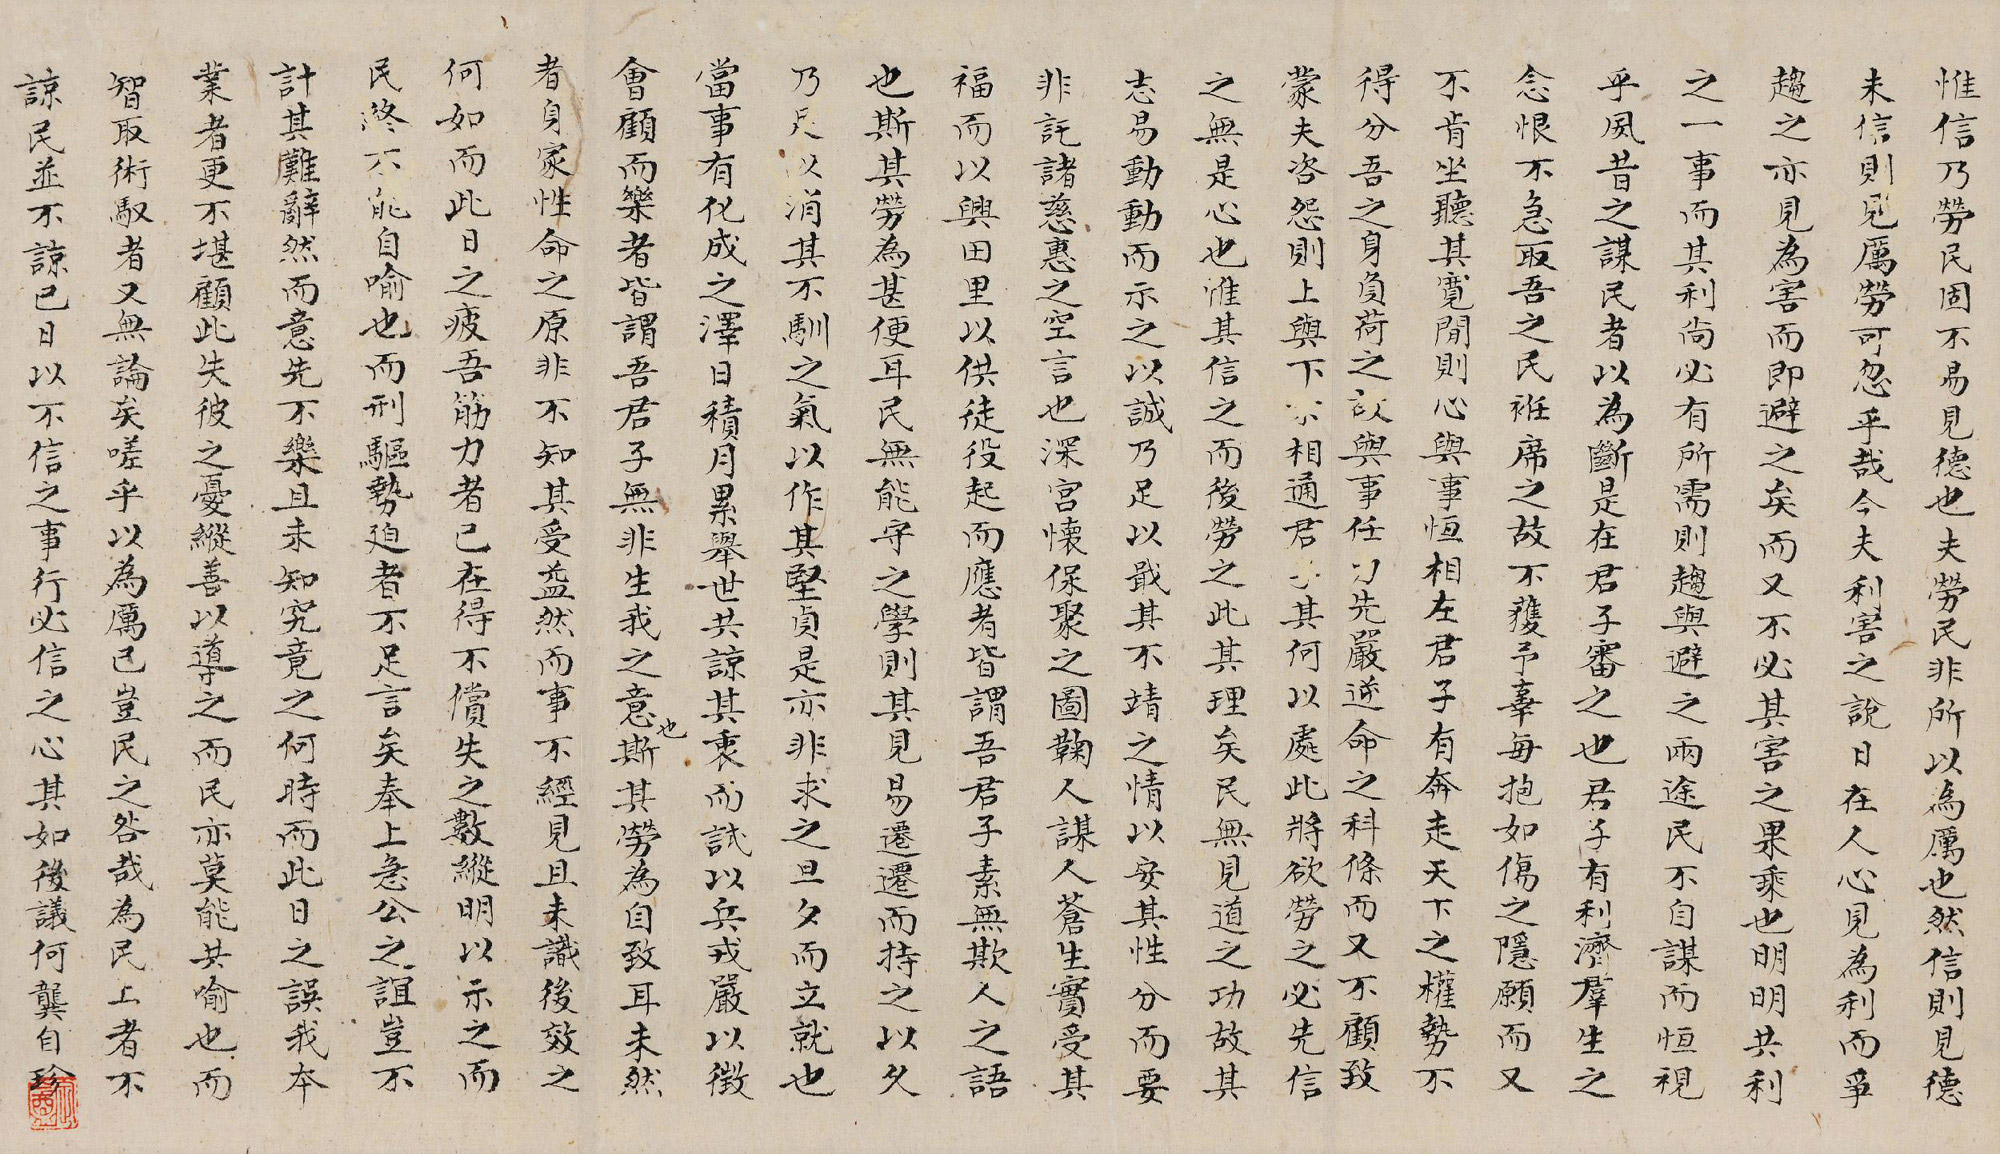 惟信乃勞民固不易見德也夫勞民非所以為厲也然信則見德
未信則見厲勞可忽乎哉今夫利害之說日在人心見為利而爭
趨之亦見為害而即避之矣而又不必其害之果乘也明明共利
之一事而其利尚必有所需則趨與避之兩途民不自謀而恒視
乎夙昔之謀民者以為斷是在君子審之也君子有利濟羣生之
念恨不急取吾之民袵席之故不獲予辜每抱如傷之隱願而又
不肯坐聽其寬閒則心與事恒相左君子有奔走天下之權勢不
得分吾之身負荷之故與事任力先嚴逆命之科條而又不顧致
蒙夫咨怨則上與下不相通君子其何以處此將欲勞之必先信
之無是心也惟其信之而後勞之此其理矣民無見道之功故其
志易動動而示之以誠乃足以戢其不靖之情以安其性分而要
非託諸慈惠之空言也深宮懷保聚之圖鞠人謀人蒼生實受其
福而以興田里以供徒役起而應者皆謂吾君子素無欺人之語
也斯其勞為甚便耳民無能守之學則其見易遷遷而持之以久
乃足以消其不馴之氣以作其堅貞是亦非求之旦夕而立就也
當事有化成之澤日積月累舉世共諒其衷而試以兵戎嚴以徵
會顧而樂者皆謂吾君子無非生我之意也斯其勞為自致耳未然
者身家性命之原非不知其受益然而事不經見且未識後效之
何如而此日之疲吾筋力者已在得不償失之數縱明以示之而
民終不能自喻也而刑驅勢廹者不足言矣奉上急公之誼豈不
計其難辭然而意先不樂且未知究竟之何時而此日之誤我本
業者更不堪顧此失彼之憂縱善以導之而民亦莫能共喻也而
智取術馭者又無論矣嗟乎以為厲已豈民之咎哉為民上者不
諒民並不諒已日以不信之事行必信之心其如後議何龔自珍